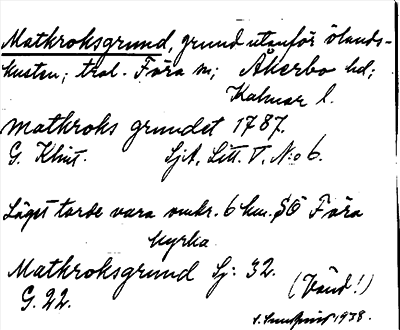 Matkroksgrund, grund utanför ölands-
kusten; trol. Föra sn; Åkerbo hd;
Kalmar l.
Matkroks grundet 1787.
G. Klint. Sjk. Litt. V. N:o 6.
Läget torde vara omkr. 6 km. SÖ Föra
kyrka
Matkroksgrund Sj: 32.
G. 22. (Vänd!)
1938.